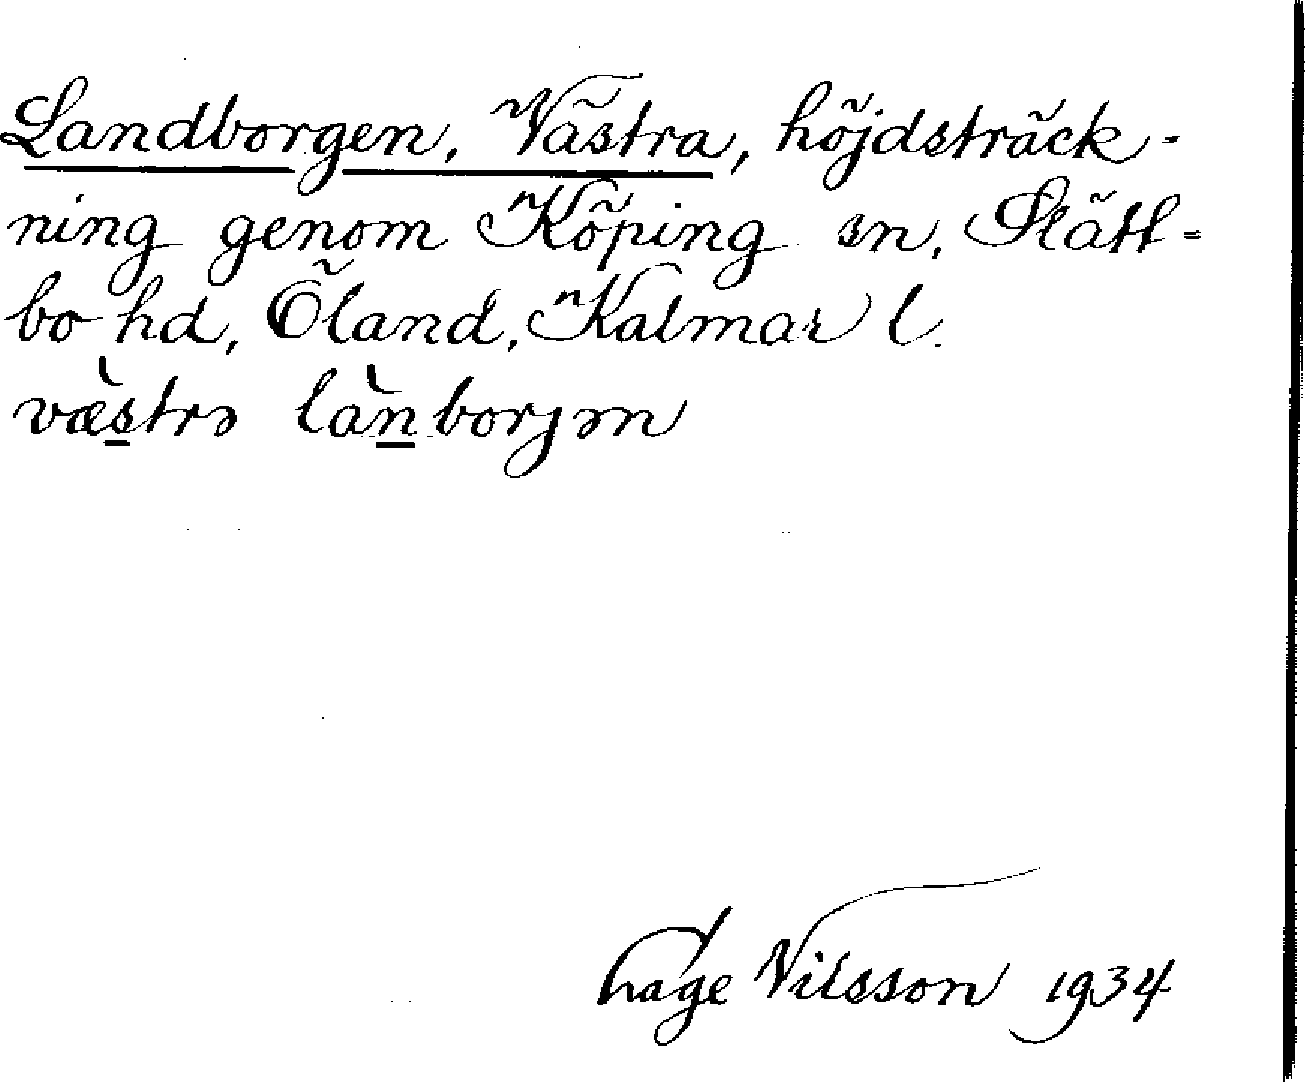 Landborgen, Västra, höjdsträck-
ning genom Köping sn, Slätt-
bo hd, Öland, Kalmar l.
væ̀s̲trə làn̲borjən
Hage Nilsson 1934